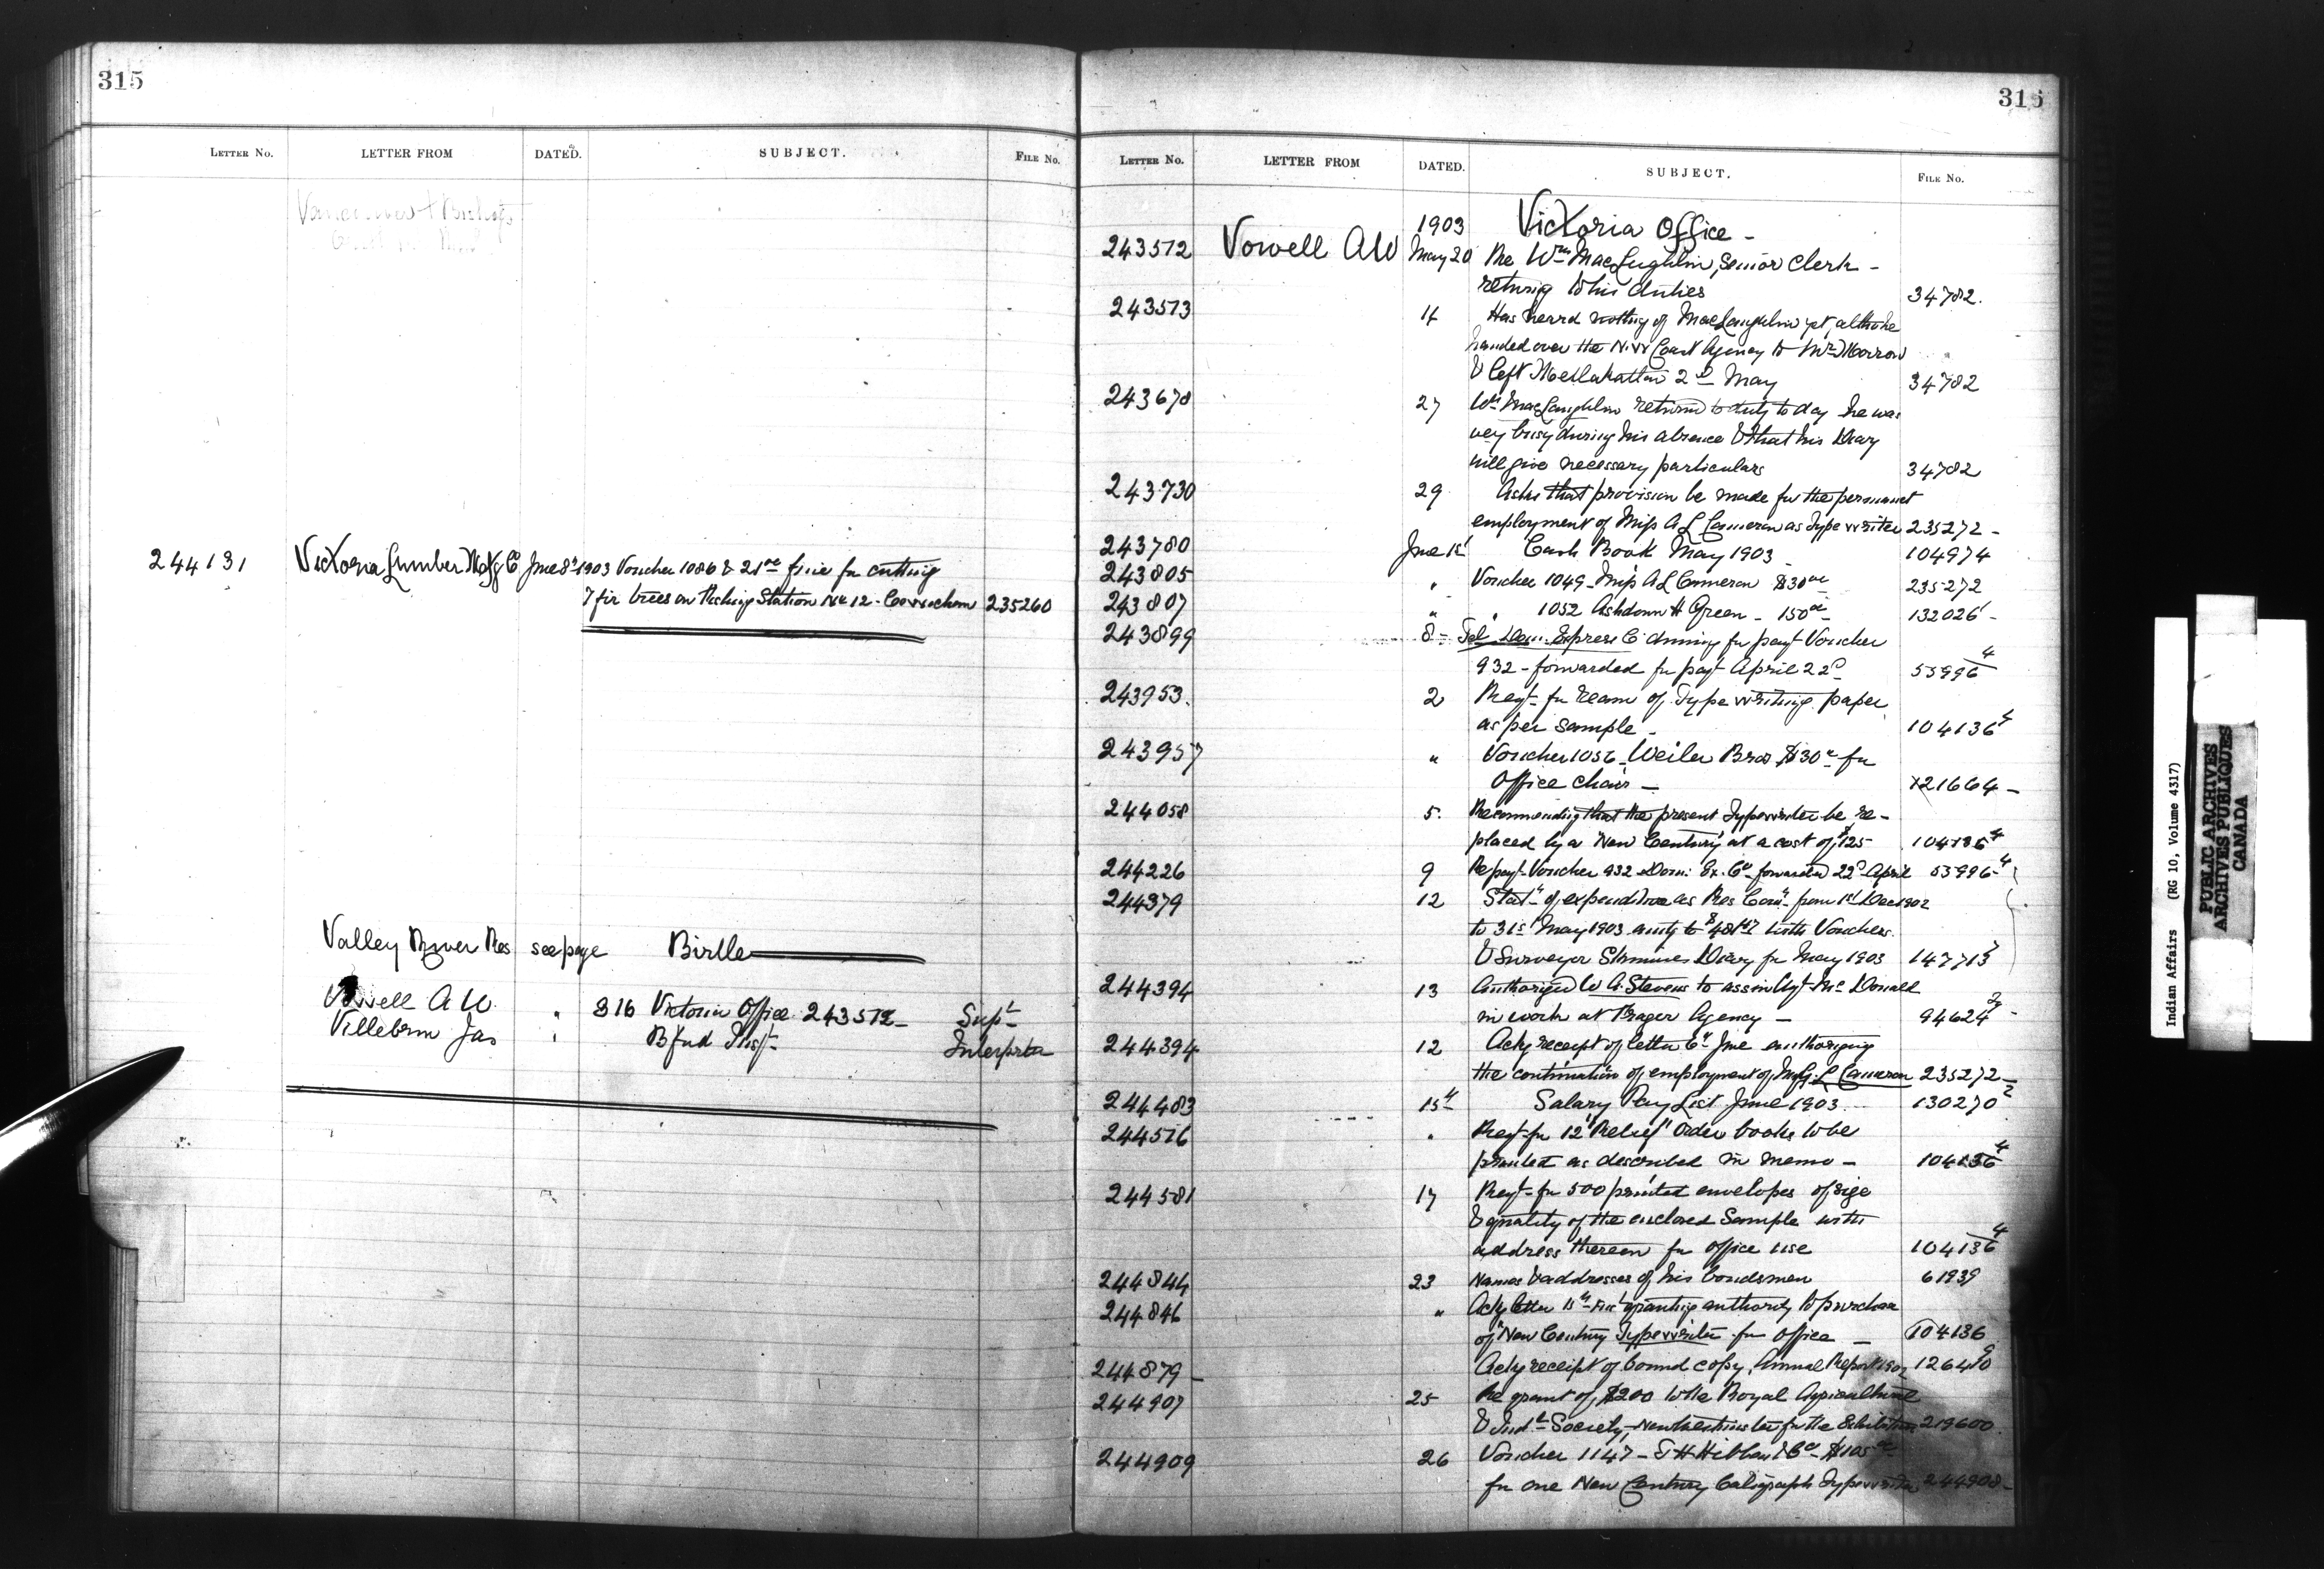 315
LETTER NO. LETTER FROM DATED. SUBJECT. FILE NO.
244131 Victoria Lumber Mfg Co June 8th 1903 Voucher 1086 & 21.00 fine for cutting
7 fir trees on Fishing Station No 12 - Cowichan 235260
Valley River Res see page Birtle
Vowell A W " 316 Victoria Office 243512 - Supt
Villebrun Jas " Bfud Inspt Interpreter
315
LETTER NO. LETTER FROM DATED. SUBJECT. FILE NO.
1903 Victoria Office -
243512 Vowell A W May 20 Re Wm MacLughlin, Senior Clerk -
returng to his duties 34782.
243513 14 Has heard nothing of MacLaughlin yet, altho he
handed over the N.W Coast Agency to Mr Morrow
& left Metlakatla 2d May 34782
243678 27 Wm MacLaughlin returned to duty to day he was
very busy during his absence & that his Diary
will give necessary particulars 34782
243730 29 Asks that provision be made for the permanent
employment of Miss A L Cameron as Typewriter 235272 -
243780 June 1st Cash Book May 1903 104974
243805 " Voucher 1049 - Miss A L Cameron $30.00 235272
243807 " " 1052 Ashdown H Green - 150.00 - 132026 -
243899 8 - Tel. Dom. Express Co dunning for payt Voucher
932 - forwarded for payt April 22d 55996 4
243953. 2 Reqt for ream of Type writing paper
as per sample - 104136 4
243957 " Voucher 1056 - Weiler Bros $30.00 for
Office chair - 121664 -
244058 5. Recommending that the present Typewriter be re-
placed by a "New Century" at a cost of $125 104136 4
244226 9 Re payt Voucher 932 Dom. Ex. Co forwarded 22d April 55996 4
244379 12 Statt of expenditure as Res Comr from 1st Dec 1902
to 31st May 1903 amtg to with Vouchers
& Surveyor Skinners Diary for May 1903 147713
244394 13 Authorized W A. Stevens to assist Agt McDonald
in work at Frazer Agency - 94624 2 -
244394 12 Ackg receipt of letter 6th June authorizing
the continuation of employment of L Cameron 235272 -
244483 15th Salary Pay List June 1903 130270 2
244516 " Reqt for 12 "Relief" Order books to be
printed as described in memo - 104136 4
244581 17 Reqt for 500 printed envelopes of size
& quality of the enclosed Sample with
address thereon for office use 104136 4
244844 23 Names & addresses of his bondsmen 61939
244846 " Ackg letter 15th inst granting authority to purchase
of "New Century Typewriter for Office - 104136
244879 - Ackg receipt of bound copy, Annual Report 1902 126480
244907 25 Re grant of $200 to the Royal Agricultural
& Indl Society, New Westminster for the Exhibition 219600
244909 26 Voucher 1147 - T H Hibben & Co $105.00
for one New Century Caligraph Typewriter 244908 -
Indian Affairs (RG 10, Volume 4317)
PUBLIC ARCHIVES
ARCHIVES PUBLIQUES
CANADA